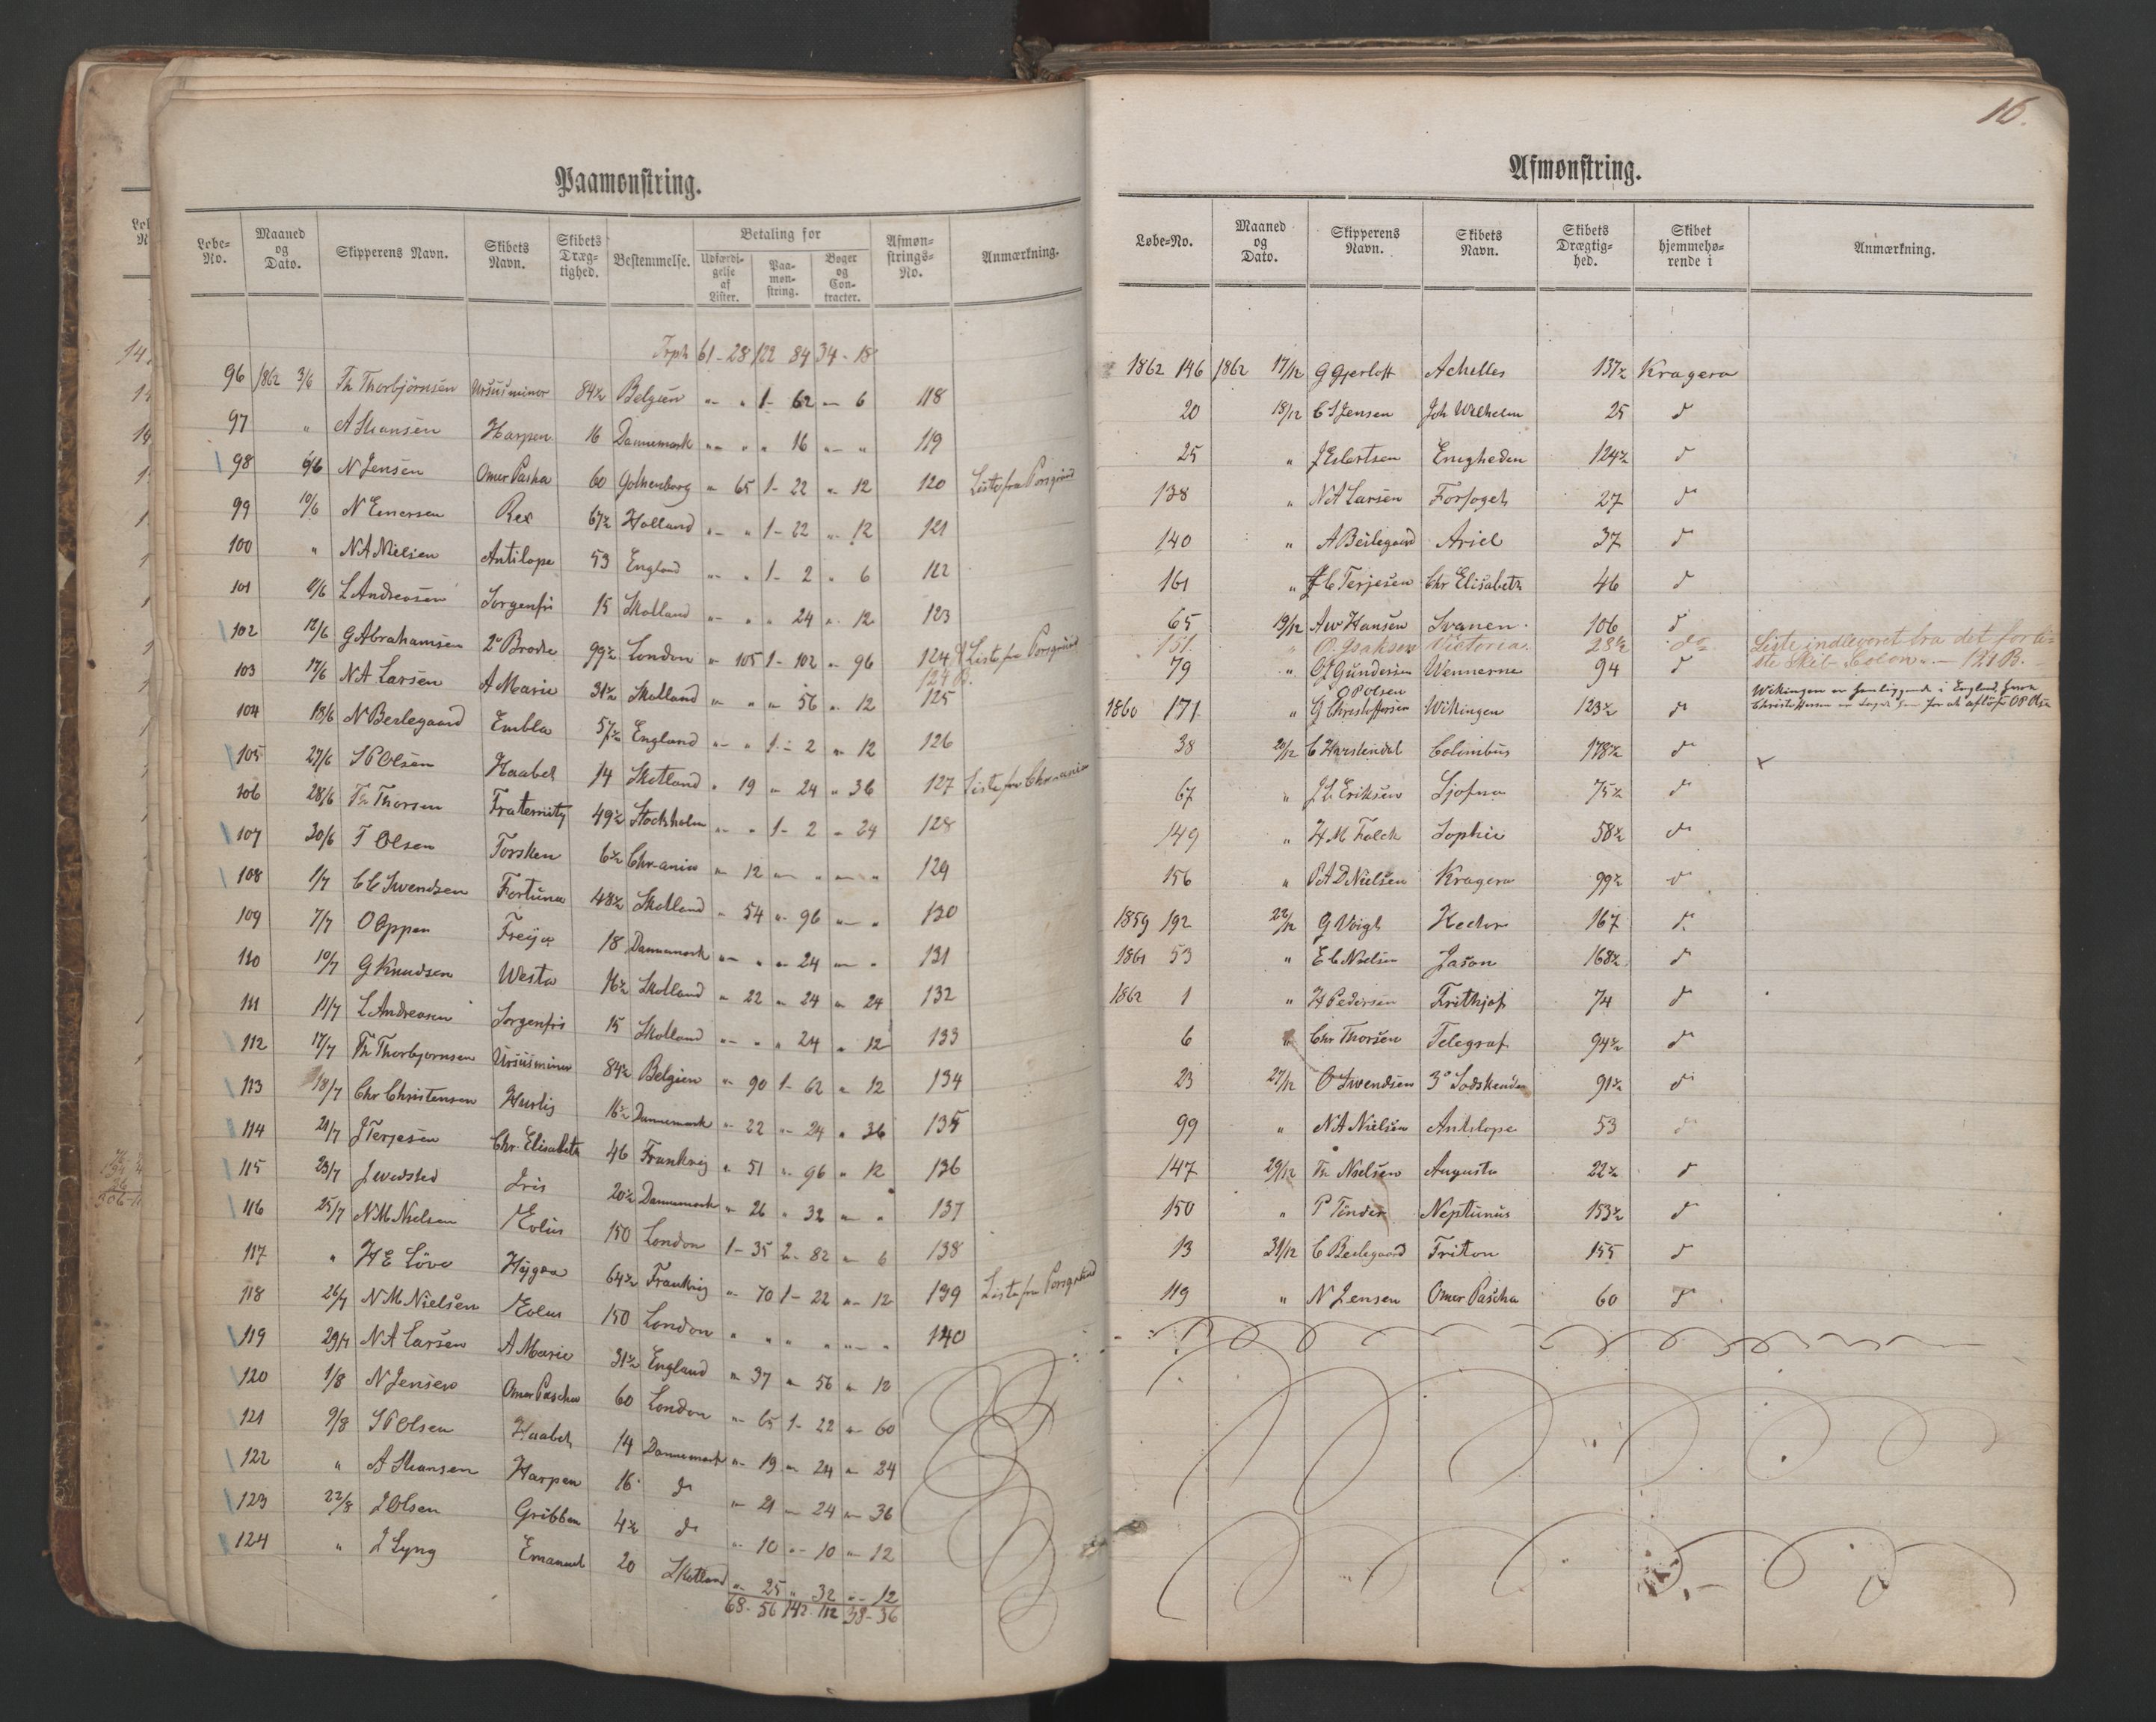 Paamønstring.
Løbe-No. Maaned og Dato. Skipperens Navn. Skibets Navn. Skibets Drægtighed. Bestemmelse. Betaling for Udfærdigelse af Lister. Paamønstring. Bøger og Contracter. Afmønstrings-No. Anmærkning.
Trpt 61-28 122 84 34-18
96 1862 3/6 Th Thorbjørnsen Ursus minor 84½ Belgien " " 1- 62 " 6 118
97 " A Hansen Harpen 16 Dannemark " " " 16 " " 119
98 6/6 N Jensen Omer Pasha 60 Gothenborg " 65 1- 22 " 12 120 Liste fra Porsgrund
99 10/6 N Enersen Rex 67½ Holland " " 1- 22 " 12 121
100 " N A Nielsen Antilope 53 England " " 1- 2 " 6 122
101 11/6 L Andreasen Sorgenfri 15 Skotland " " " 24 " 12 123
102 12/6 G Abrahamsen 2de Brødre 99½ London " 105 1- 102 " 96 124 Liste fra Porsgrund
124 B.
103 17/6 N A Larsen A Marie 31½ Skotland " " " 56 " 12 125
104 18/6 N Beslegaard Embla 57½ England " " 1- 2 " 12 126
105 27/6 S P Olsen Haabet 14 Skotland " 19 " 24 " 36 127 Liste fra Chr-ania
106 28/6 Th Thorsen Fraternity 49½ Stockholm " " 1- 2 " 24 128
107 30/6 T Olsen Torsken 6½ Chr-ania " 12 " " " " 129
108 1/7 C C Svendsen Fortuna 48½ Skotland " 54 " 96 " " 130
109 7/7 O Eppen Freija 18 Dannemark " " " 24 " " 131
110 10/7 G Knudsen Westa 16½ Skotland " 22 " 24 " 24 132
111 11/7 L Andreasen Sorgenfri 15 Skotland " " " 24 " 12 133
112 17/7 Th Thorbjørnsen Ursus minor 84½ Belgien " 90 1- 62 " 12 134
113 18/7 Chr Christensen Hurtig 16½ Dannemark " 22 " 24 " 36 135
114 21/7 J Terjesen Chr. Elisabeth 46 Frankrig " 51 " 96 " 12 136
115 23/7 J Wedsted Iris 20½ Dannemark " 26 " 32 " " 137
116 25/7 N M Nielsen Eolus 150 London 1-35 2- 82 " 6 138
117 " H E Löve Hygea 64½ Frankrig " 70 1- 22 " 12 139 Liste fra Porsgrund
118 26/7 N M Nielsen Eolus 150 London " " " " " " 140
119 29/7 N A Larsen A Marie 31½ England " 37 " 56 " 12
120 1/8 N Jensen Omer Pascha 60 London " 65 1- 22 " 60
121 9/8 S P Olsen Haabet 14 Dannemark " 19 " 24 " 24
122 " A Hansen Harpen 16 do " 21 " 24 " 36
123 22/8 J Olsen Gribben 4½ do " 10 " 10 " 12
124 " J Lyng Emanuel 20 Skotland " 25 " 32 " 12
68-56 142-112 38-36
16.
Afmønstring.
Løbe-No. Maaned og Dato. Skipperens Navn. Skibets Navn. Skibets Drægtighed. Skibet hjemmehørende i Anmærkning.
1862 146 1862 17/12 G Gjerløff Achelles 137½ Kragerø
20 18/12 C S Jensen Joh Wilhelm 25 do
25 " J Eilertsen Enigheden 124½ do
138 " N A Larsen Forsøget 27 do
140 " A Beslegaard Ariel 37 do
161 " J C Terjesen Chr Elisabeth 46 do
65 19/12 A W Hansen Svanen 106 do
151. " O. Isaksen Victoria. 28½ do Liste indleveret fra det forliste
79 " O L Gundersen Wennerne 94 do 121 B.
O P Olsen
1860 171 " G Christoffersen Wikingen 123½ do Wikingen er henliggende i England, hvor Christoffersen er for at afløse O P Olsen
38 20/12 C Harskindel Colimbus 178½ do
67 " J L Eriksen Sjofna 75½ do
149 " H M Falck Sophie 58½ do
156 " P A D Nielsen Kragerø 99½ do
1859 192 22/12 G Voigt Hector 167 do
1861 53 " E C Nielsen Jason 168½ do
1862 1 " H Pedersen Frithjof 74 do
6 " Chr Thorsen Telegraf 94½ do
23 27/12 O Svendsen 3de Sødskende 91½ do
99 " N A Nielsen Antilope 53 do
147 29/12 Th Nielsen Augusta 22½ do
150 " P Tønder Neptunus 153½ do
13 31/12 C Beslegaard Triton 155 do
119 " N Jensen Omer Pascha 60 do